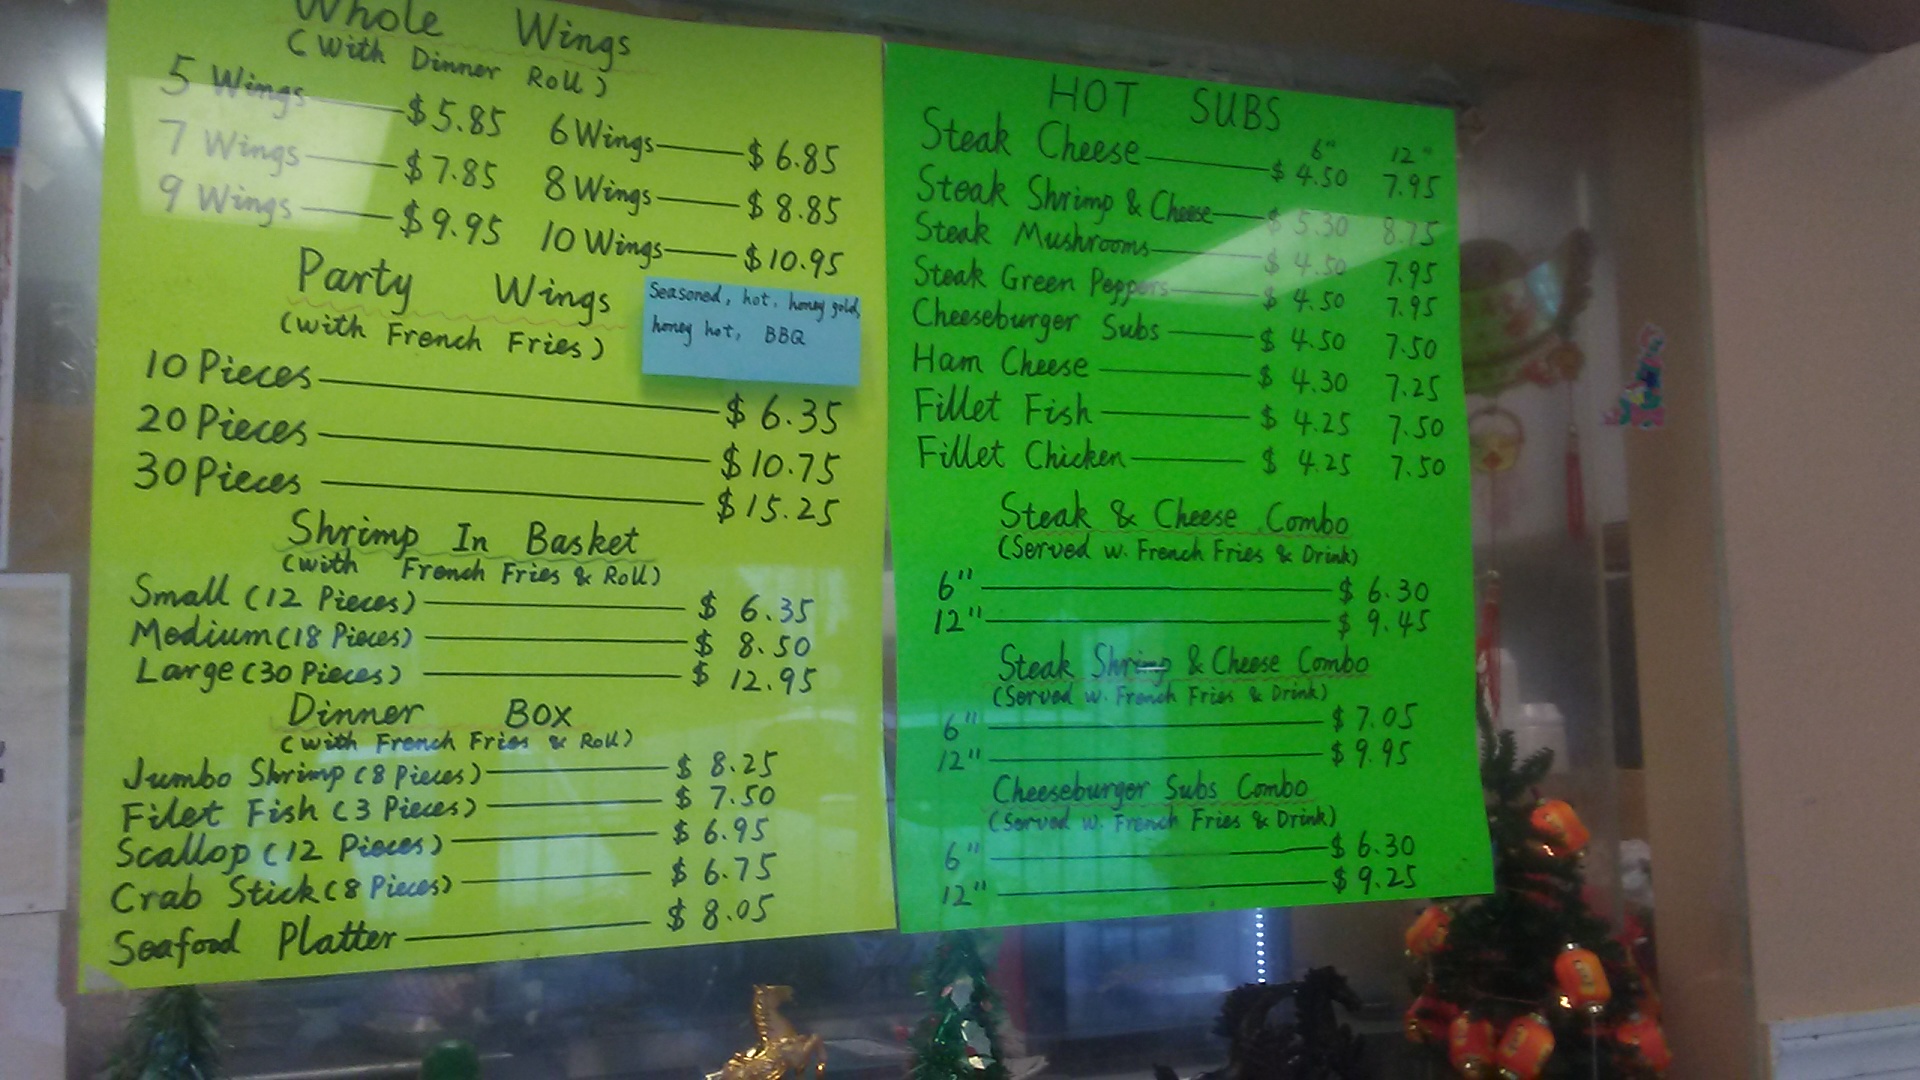 Whole Wings
(With Dinner Roll)
5 Wings $5.85 6 Wings $6.85
7 Wings $7.85 8 Wings $8.85
9 Wings $9.95 10 Wings $10.95
Party Wings
(with French Fries)
Seasoned, hot, honey gold,
honey hot, BBQ
10 Pieces $6.35
20 Pieces $10.75
30 Pieces $15.25
Shrimp In Basket
(with French Fries & Roll)
Small (12 Pieces) $6.35
Medium (18 Pieces) $8.50
Large (30 Pieces) $12.95
Dinner Box
(with French Fries & Roll)
Jumbo Shrimp (8 Pieces) $8.25
Filet Fish (3 Pieces) $7.50
Scallop (12 Pieces) $6.95
Crab Stick (8 Pieces) $6.75
Seafood Platter $8.05
HOT SUBS
6" 12"
Steak Cheese $4.50 7.95
Steak Shrimp & Cheese $5.30 8.75
Steak Mushrooms $4.50 7.95
Steak Green Peppers $4.50 7.95
Cheeseburger Subs $4.50 7.50
Ham Cheese $4.30 7.25
Fillet Fish $4.25 7.50
Fillet Chicken $4.25 7.50
Steak & Cheese Combo
(Served w. French Fries & Drink)
6" $6.30
12" $9.45
Steak Shrimp & Cheese Combo
(Served w. French Fries & Drink)
6" $7.05
12" $9.95
Cheeseburger Subs Combo
(Served w. French Fries & Drink)
6" $6.30
12" $9.25